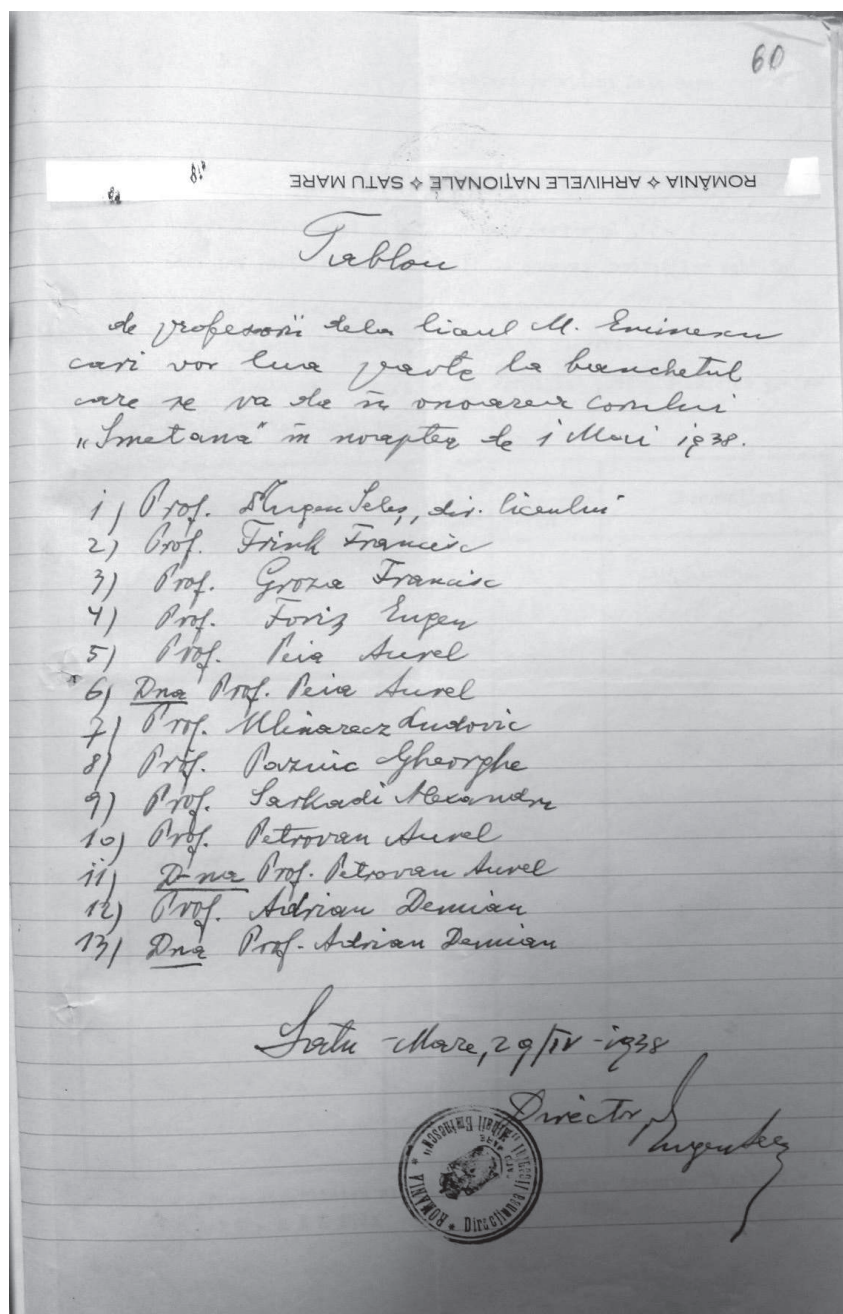 60
ROMÂNIA ✧ ARHIVELE NAȚIONALE ✧ SATU MARE
Tablou
de profesorii dela liceul M. Eminescu
cari vor lua parte la banchetul
care se va da în onoarea corului
„Smetana" în noaptea de 1 Mai 1938.
1) Prof. Eugen Seleș, dir. liceului
2) Prof. Frink Francisc
3) Prof. Groza Francisc
4) Prof. Foriz Eugen
5) Prof. Peia Aurel
6) Dna Prof. Peia Aurel
7) Prof. Mlinarecz Ludovic
8) Prof. Pazuic Gheorghe
9) Prof. Sarkadi Alexandru
10) Prof. Petrovan Aurel
11) D-na Prof. Petrovan Aurel
12) Prof. Adrian Demian
13) Dna Prof. Adrian Demian
Satu-Mare, 29/IV-1938
Director,
ROMÂNIA * Direcțiunea Liceului „Mihail Eminescu" *
SATU MARE